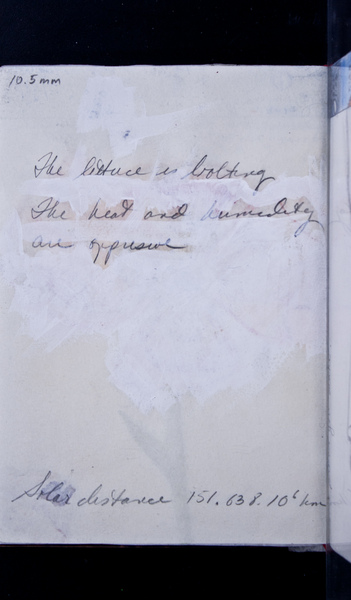 10.5mm
The lettuce is bolting
The heat and humidity
are oppresive
Solar distance 151.638.10⁶ km